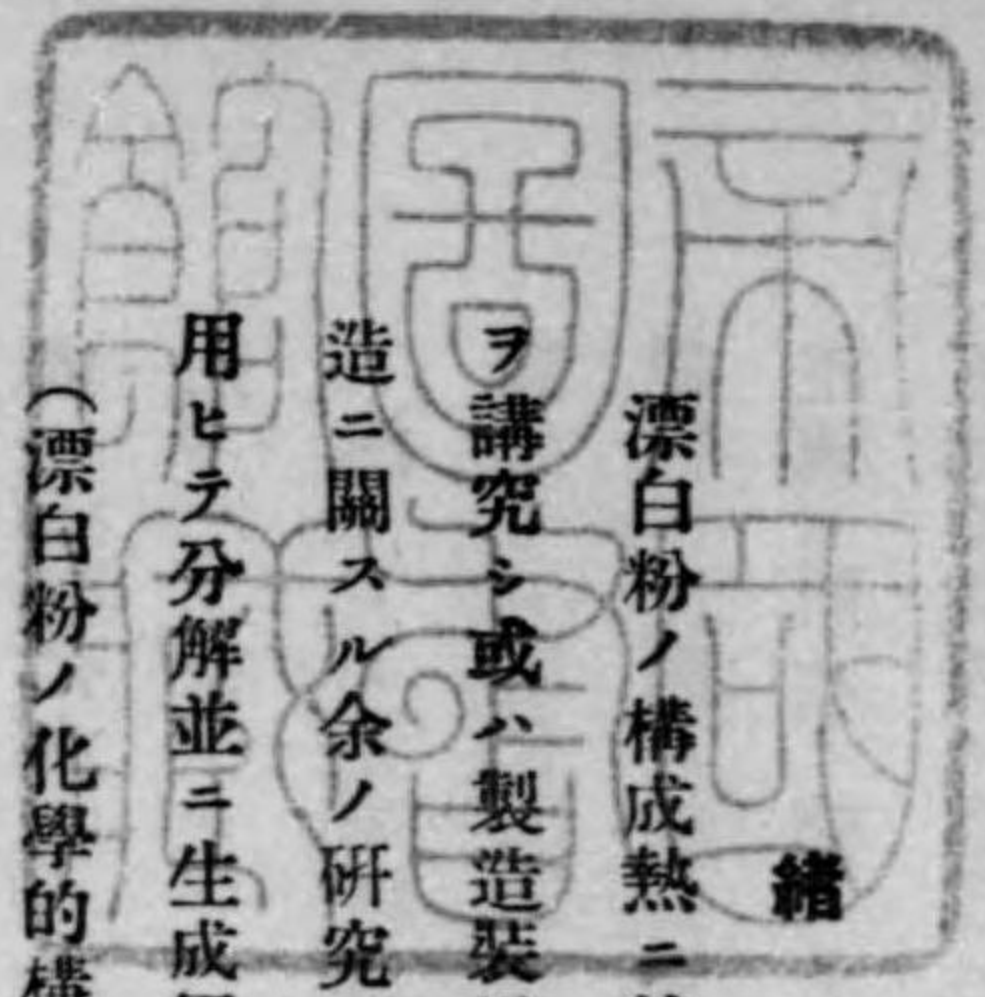 緒
漂白粉ノ構成熱ニ
ヲ講究シ或ハ製造裝
造ニ關スル余ノ硏究
用ヒテ分解並ニ生成
(漂白粉ノ化學的構